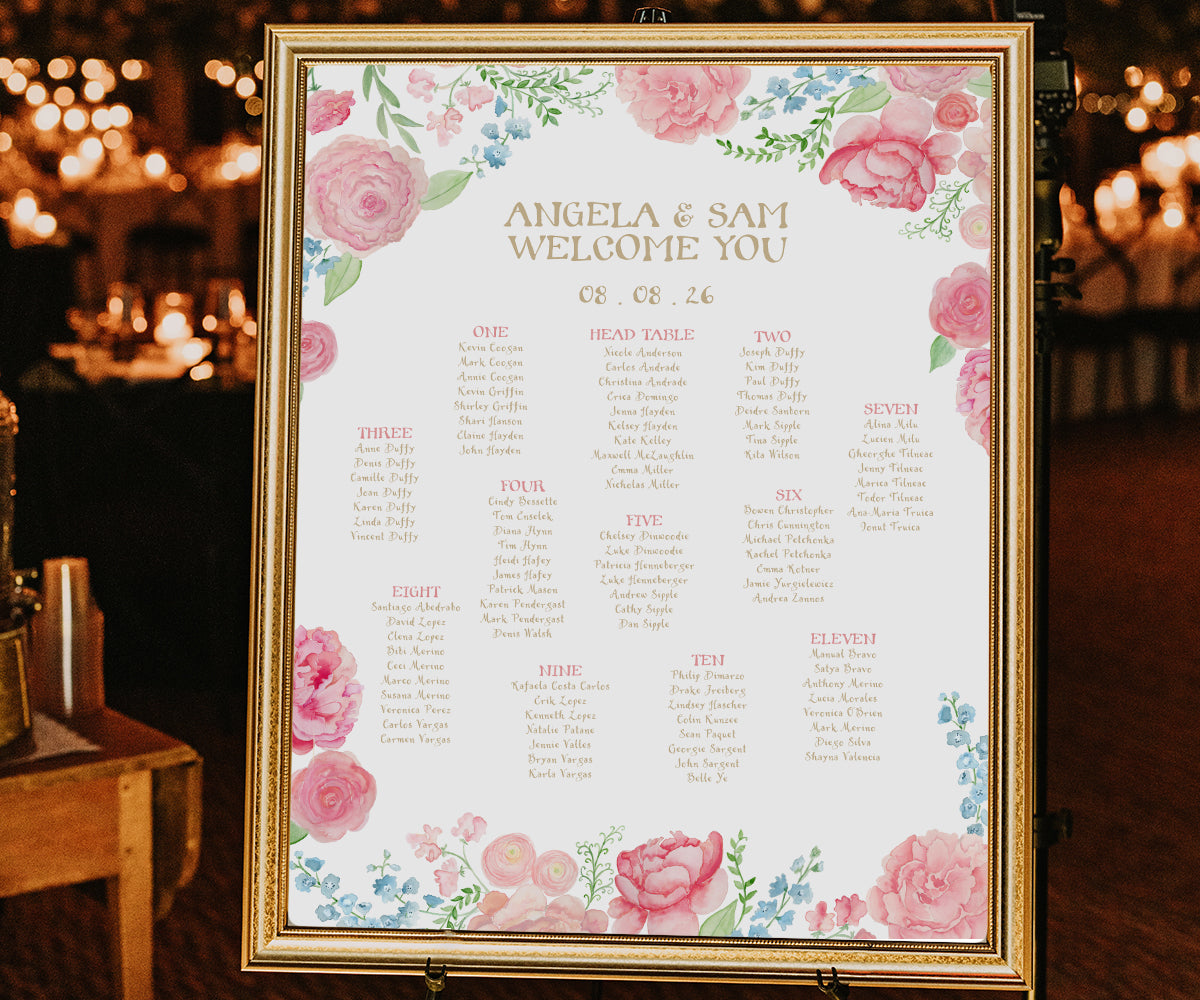 ANGELA & SAM
WELCOME YOU
08 . 08 . 26
ONE
Kevin Coogan
Mark Coogan
Annie Coogan
Kevin Griffin
Shirley Griffin
Shari Hanson
Elaine Hayden
John Hayden
HEAD TABLE
Nicole Anderson
Carlos Andrade
Christina Andrade
Erica Domingo
Jenna Hayden
Kelsey Hayden
Kate Kelley
Maxwell McLaughlin
Emma Miller
Nicholas Miller
TWO
Joseph Duffy
Kim Duffy
Paul Duffy
Thomas Duffy
Deidre Sanborn
Mark Sipple
Tina Sipple
Rita Wilson
THREE
Anne Duffy
Denis Duffy
Camille Duffy
Joan Duffy
Karen Duffy
Linda Duffy
Vincent Duffy
FOUR
Cindy Bessette
Tom Enselek
Diana Flynn
Tim Flynn
Heidi Hafey
James Hafey
Patrick Mason
Karen Pendergast
Mark Pendergast
Denis Walsh
FIVE
Chelsey Dinwoodie
Luke Dinwoodie
Patricia Henneberger
Luke Henneberger
Andrew Sipple
Cathy Sipple
Dan Sipple
SIX
Bowen Christopher
Chris Cunnington
Michael Petchonka
Rachel Petchonka
Emma Rotner
Jamie Yurgielewicz
Andrea Zannos
SEVEN
Alina Milu
Lucien Milu
Gheorghe Tilneac
Jenny Tilneac
Marica Tilneac
Todor Tilneac
Ana-Maria Truica
Ionut Truica
EIGHT
Santiago Abedrabo
David Lopez
Elena Lopez
Bibi Merino
Ceci Merino
Marco Merino
Susana Merino
Veronica Perez
Carlos Vargas
Carmen Vargas
NINE
Rafaela Costa Carlos
Erik Lopez
Kenneth Lopez
Natalie Patane
Jennie Valles
Bryan Vargas
Karla Vargas
TEN
Philip Dimarzo
Drake Freiberg
Lindsey Hascher
Colin Kunzee
Sean Paquet
Georgie Sargent
John Sargent
Belle Ye
ELEVEN
Manual Bravo
Satya Bravo
Anthony Merino
Lucia Morales
Veronica O'Brien
Mark Merino
Diego Silva
Shayna Valencia